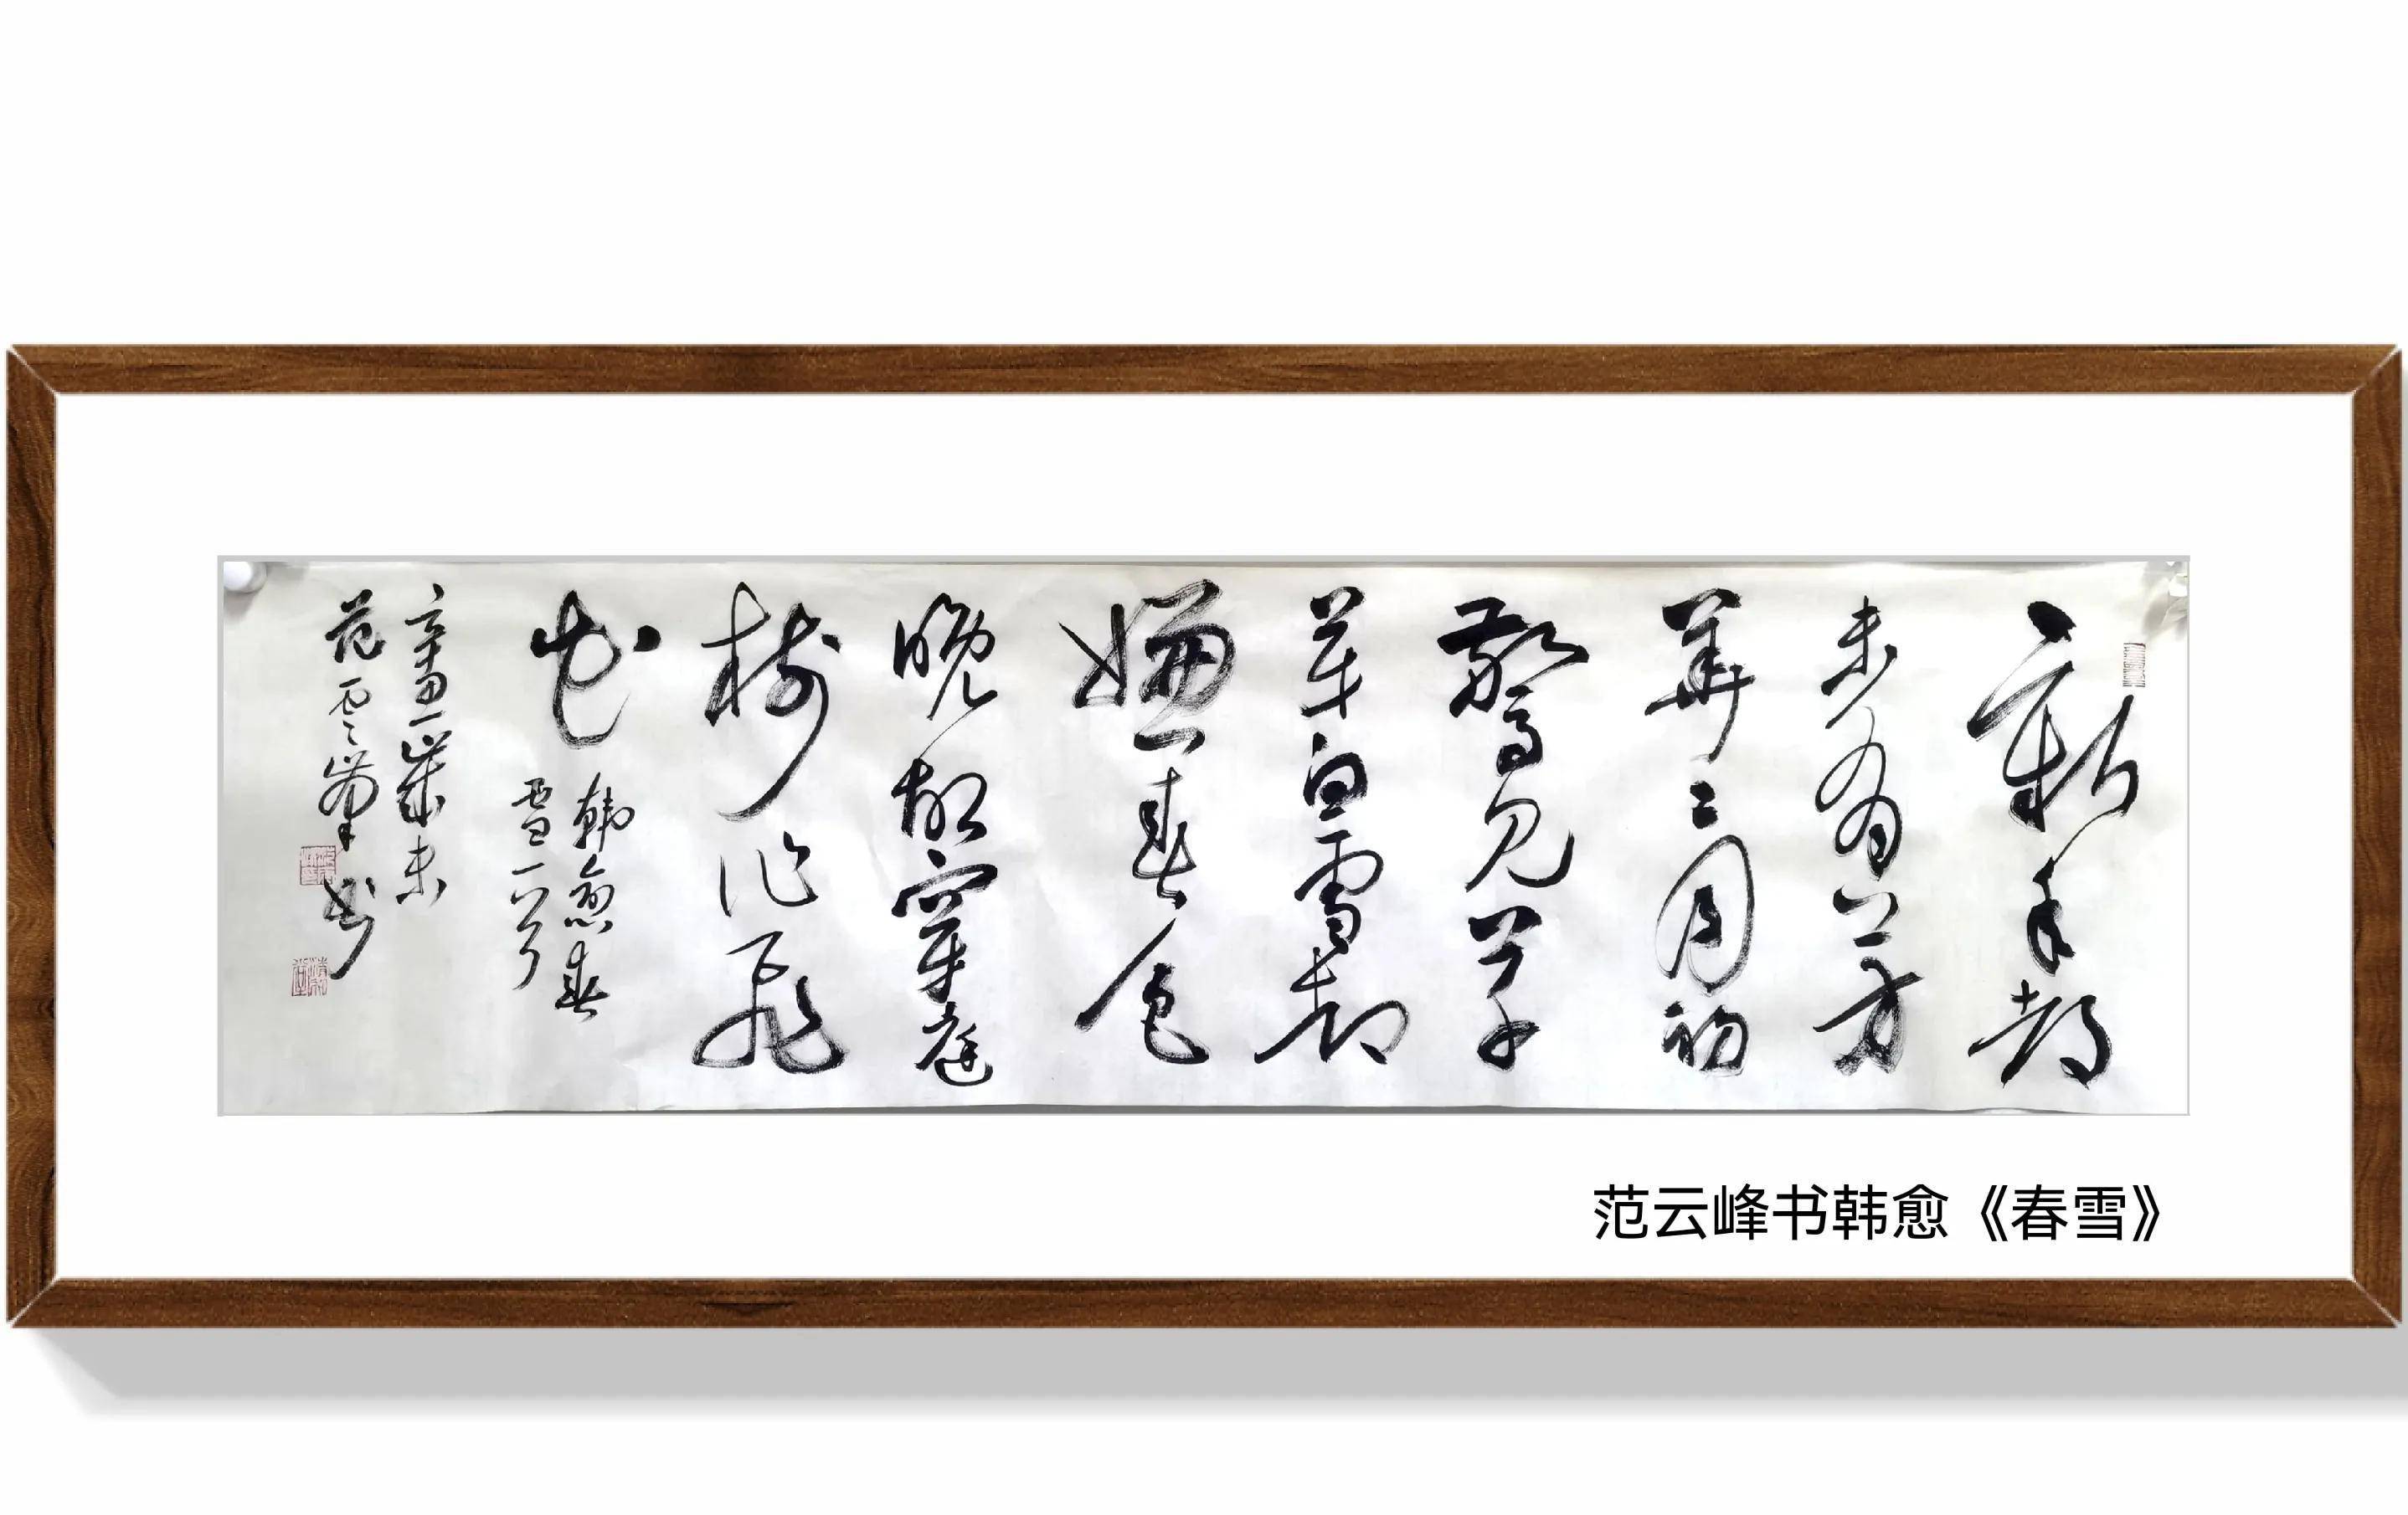 新年都
未有芳
華二月初
驚見草
芽白雪却
嫌春色
晚故穿庭
樹作飛
花
韓愈春
雪一首
辛丑歲末
范雲峯书
范云峰书韩愈《春雪》